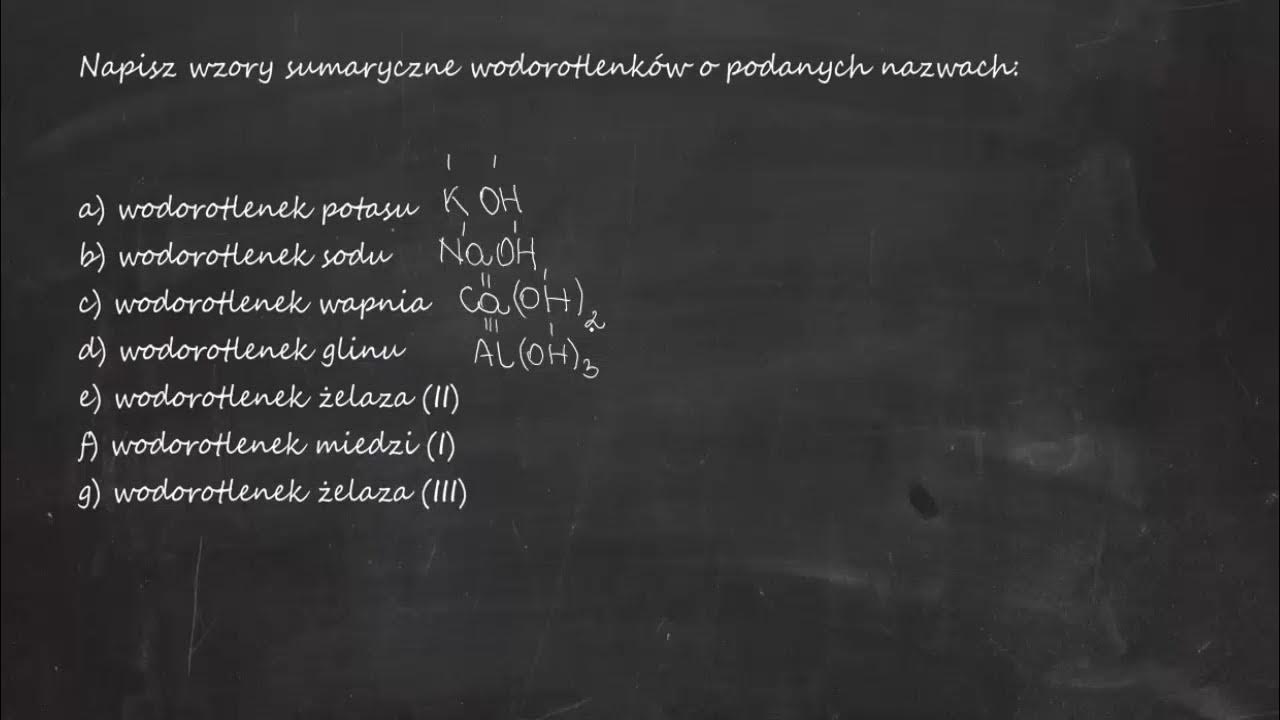 Napisz wzory sumaryczne wodorotlenków o podanych nazwach:
a) wodorotlenek potasu K OH
b) wodorotlenek sodu NaOH
c) wodorotlenek wapnia Ca(OH)2
d) wodorotlenek glinu Al(OH)3
e) wodorotlenek żelaza (II)
f) wodorotlenek miedzi (I)
g) wodorotlenek żelaza (III)